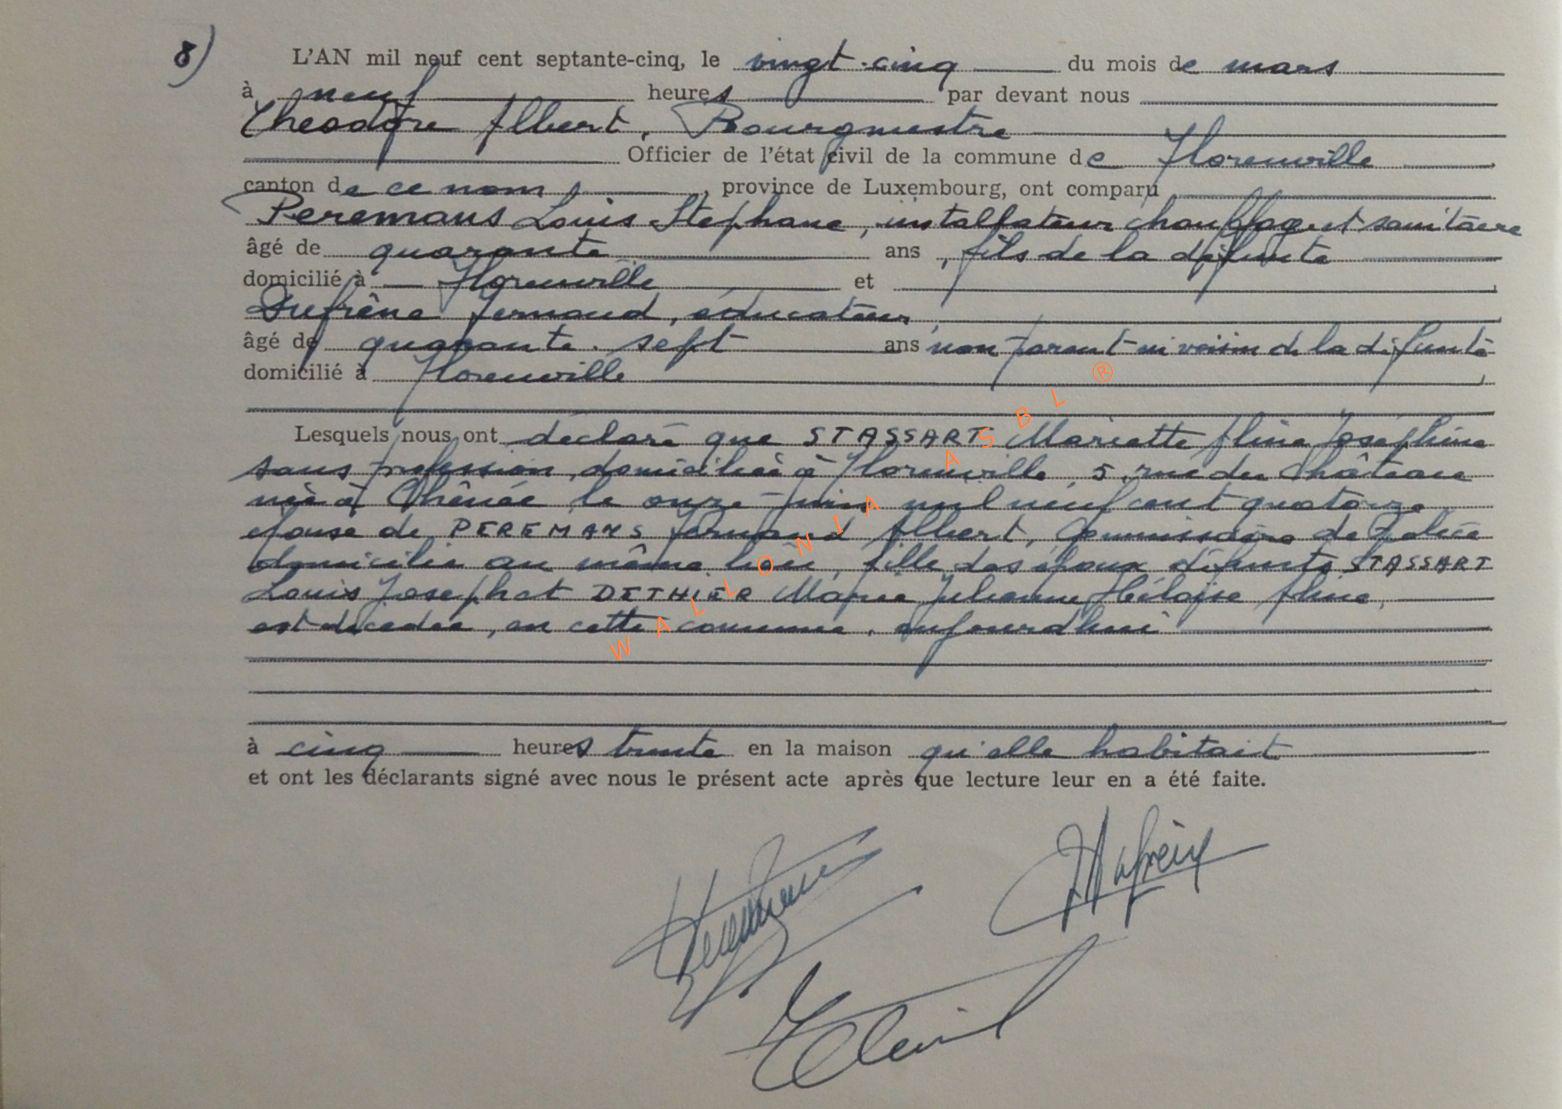 8)
L'AN mil neuf cent septante-cinq, le vingt-cinq du mois de mars
à neuf heures par devant nous
Théodore Albert, Bourgmestre
Officier de l'état civil de la commune de Florenville
canton de ce nom, province de Luxembourg, ont comparu
Peremans Louis Stephane, installateur chauffage et sanitaire
âgé de quarante ans, fils de la défunte
domicilié à Florenville et
Dufrêne Fernand, éducateur,
âgé de quarante-sept ans non parent ni voisin de la défunte
domicilié à Florenville
Lesquels nous ont déclaré que STASSART Mariette Aline Joséphine
sans profession, domiciliée à Florenville, 5, rue du Château
née à Chênée le onze juin mil neuf cent quatorze
épouse de PEREMANS Fernand Albert, Commissaire de Police
domicilié au même lieu, fille des époux défunts STASSART
Louis Joseph et DETHIER Marie Julienne Héloïse Aline,
est décédée, en cette commune, aujourd'hui
à cinq heures trente en la maison qu'elle habitait
et ont les déclarants signé avec nous le présent acte après que lecture leur en a été faite.
WALLONIA ASBL ®